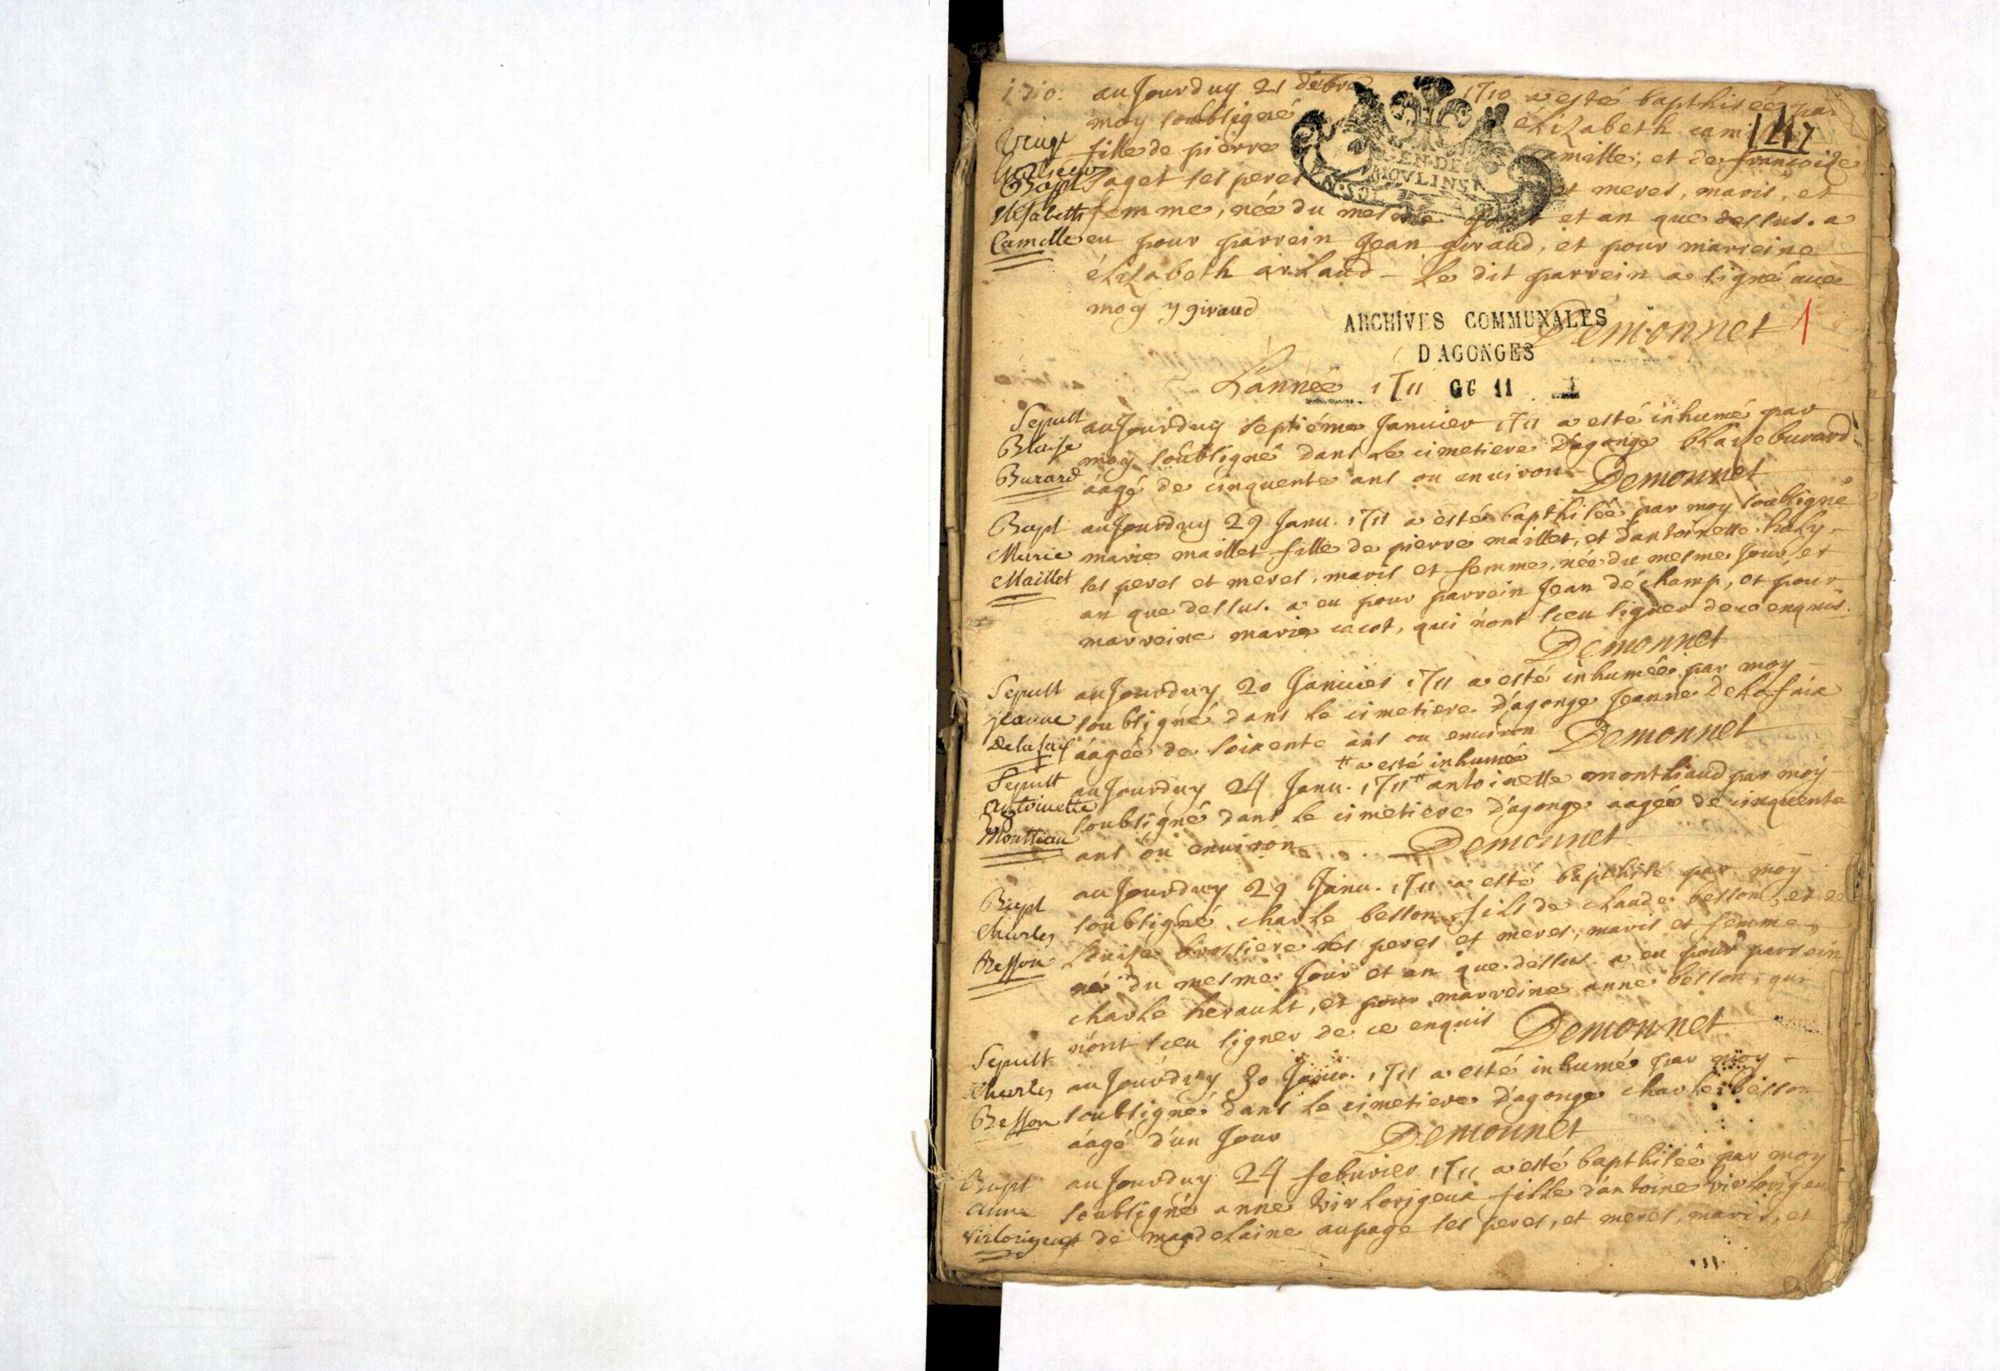 1710. aujourduy 21 debre 1710 a esté bapthisée par
moy soubsigné élizabeth cami
1217
fille de pierre camille, et de francoise
GEN. DE
MOVLINS
Bapt
saget ses peres et meres, maris, et
Elisabeth
femme, née du mesme jour et an que dessus. a
Camille
eu pour parrein Jean giraud, et pour marreine
élizabeth arlaud - Le dit parrein a signé avec
moy y giraud
Demonnet
1
ARCHIVES COMMUNALES
D'AGONGES
GG 11 1
L'année 1711
Sepult
Blaise
Burard
aujourduy septiéme Janvier 1711 a esté inhumé par
moy soubsigné dans Le cimetiere D'agonge blaise burard
áagé de cinquente ans ou environ Demonnet
Bapt
Marie
Maillet
aujourduy 29 Janu. 1711 a esté bapthisée par moy soubsigné
marie maillet fille de pierre maillet, et d'antoinette
ses peres et meres, maris et femme, née du mesme jour et
an que dessus. a eu pour parrein Jean déchamp, et pour
marreine marie cacot, qui n'ont sceu signer de ce enquis.
Demonnet
Sepult
jeanne
Delafay
aujourduy 20 Janvier 1711 a esté inhumée par moy
soubsigné dans le cimetiere D'agonge Jeanne Delafaix
áagée de soixente ans ou environ Demonnet
Sepult
Antoinette
Montteau
# a esté inhumée
aujourduy 24 Janu. 1711 # antoinette monthiaud par moy
soubsigné dans Le cimetiere D'agonge aagée de cinquente
ans ou environ Demonnet
Bapt
Charles
Besson
aujourduy 29 Janu. 1711 a esté bapthisé par moy
soubsigné charle besson fils de claude besson, et de
Louise brossiere ses peres et meres, maris et femme,
né du mesme Jour et an que dessus. a eu pour parrein
charle herault, et pour marreine anne besson, qui
n'ont sceu signer de ce enquis Demonnet
Sepult
Charles
Besson
aujourduy 30 Janu. 1711 a esté inhumé par moy
soubsigné dans Le cimetiere D'agonge charle besson
áagé d'un Jour Demonnet
Bapt
Anne
Virlorigeux
aujourduy 24 febvrier 1711 a esté bapthisée par moy
soubsigné anne virlorigeux fille d'antoine virlorigeux
de magdelaine aupage ses peres, et meres, maris, et